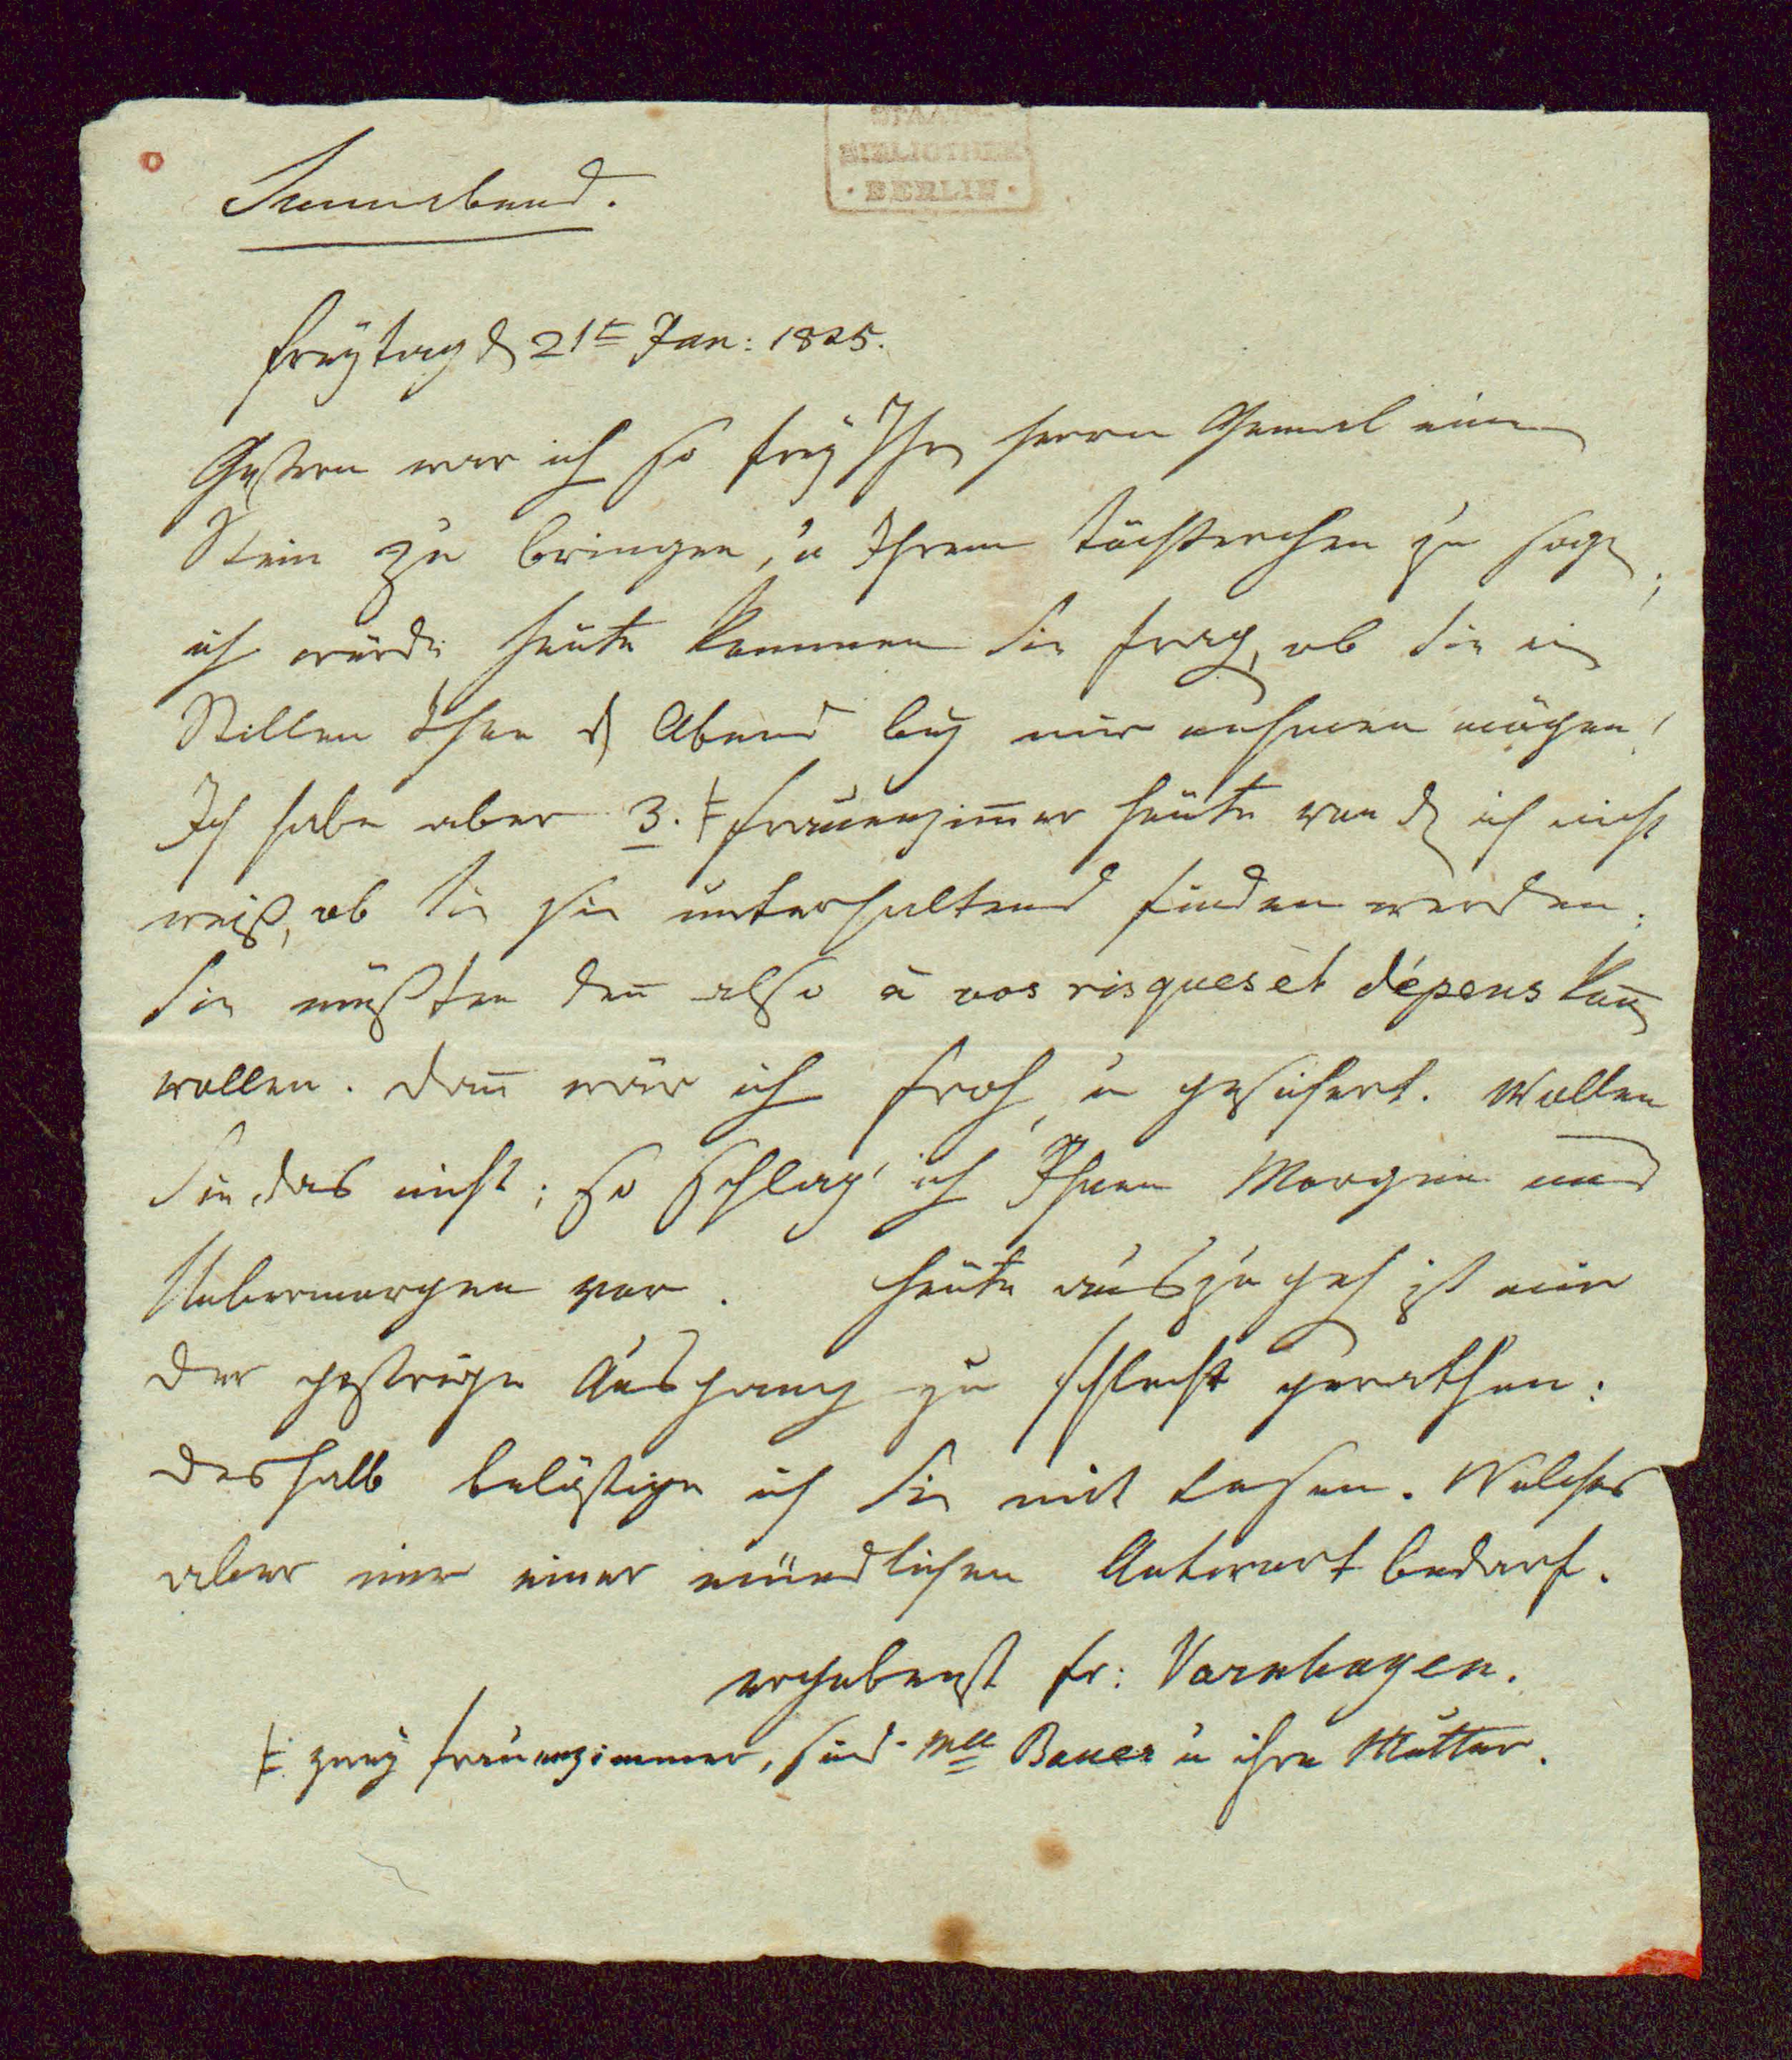 STAATS-
BIBLIOTHEK
· BERLIN ·
Sonnabend.
Freytag d 21t Jan: 1825.
Gestern war ich so frey Ihrem Herrn Gemal einen
Stein zu bringen, u Ihrem Töchterchen zu sagen,
ich würde heute kommen Sie fragen, ob Sie ein
Stillen Thee d Abend bey mir nehmen mögen!
Ich habe aber 3. Ɨ Frauenzim̅er heute von den ich nicht
weiß, ob Sie sie unterhaltend finden werden.
Sie müßten den̅ also à vos risques et dépens kom̅en
wollen. Dan̅ wär ich froh, u gesichert. Wollen
Sie das nicht; so schlag' ich Ihnen Morgen und
Uebermorgen vor. Heute auszugehen ist mir
der gestrige Ausgang zu schlecht gerathen:
deshalb belästige ich Sie mit Lesen. Welches
aber nur einer mündlichen Antwort bedarf.
ergebenst Fr: Varnhagen.
Ɨ. zwey Frauenzimmer, sind Mlle Bauer u ihre Mutter.